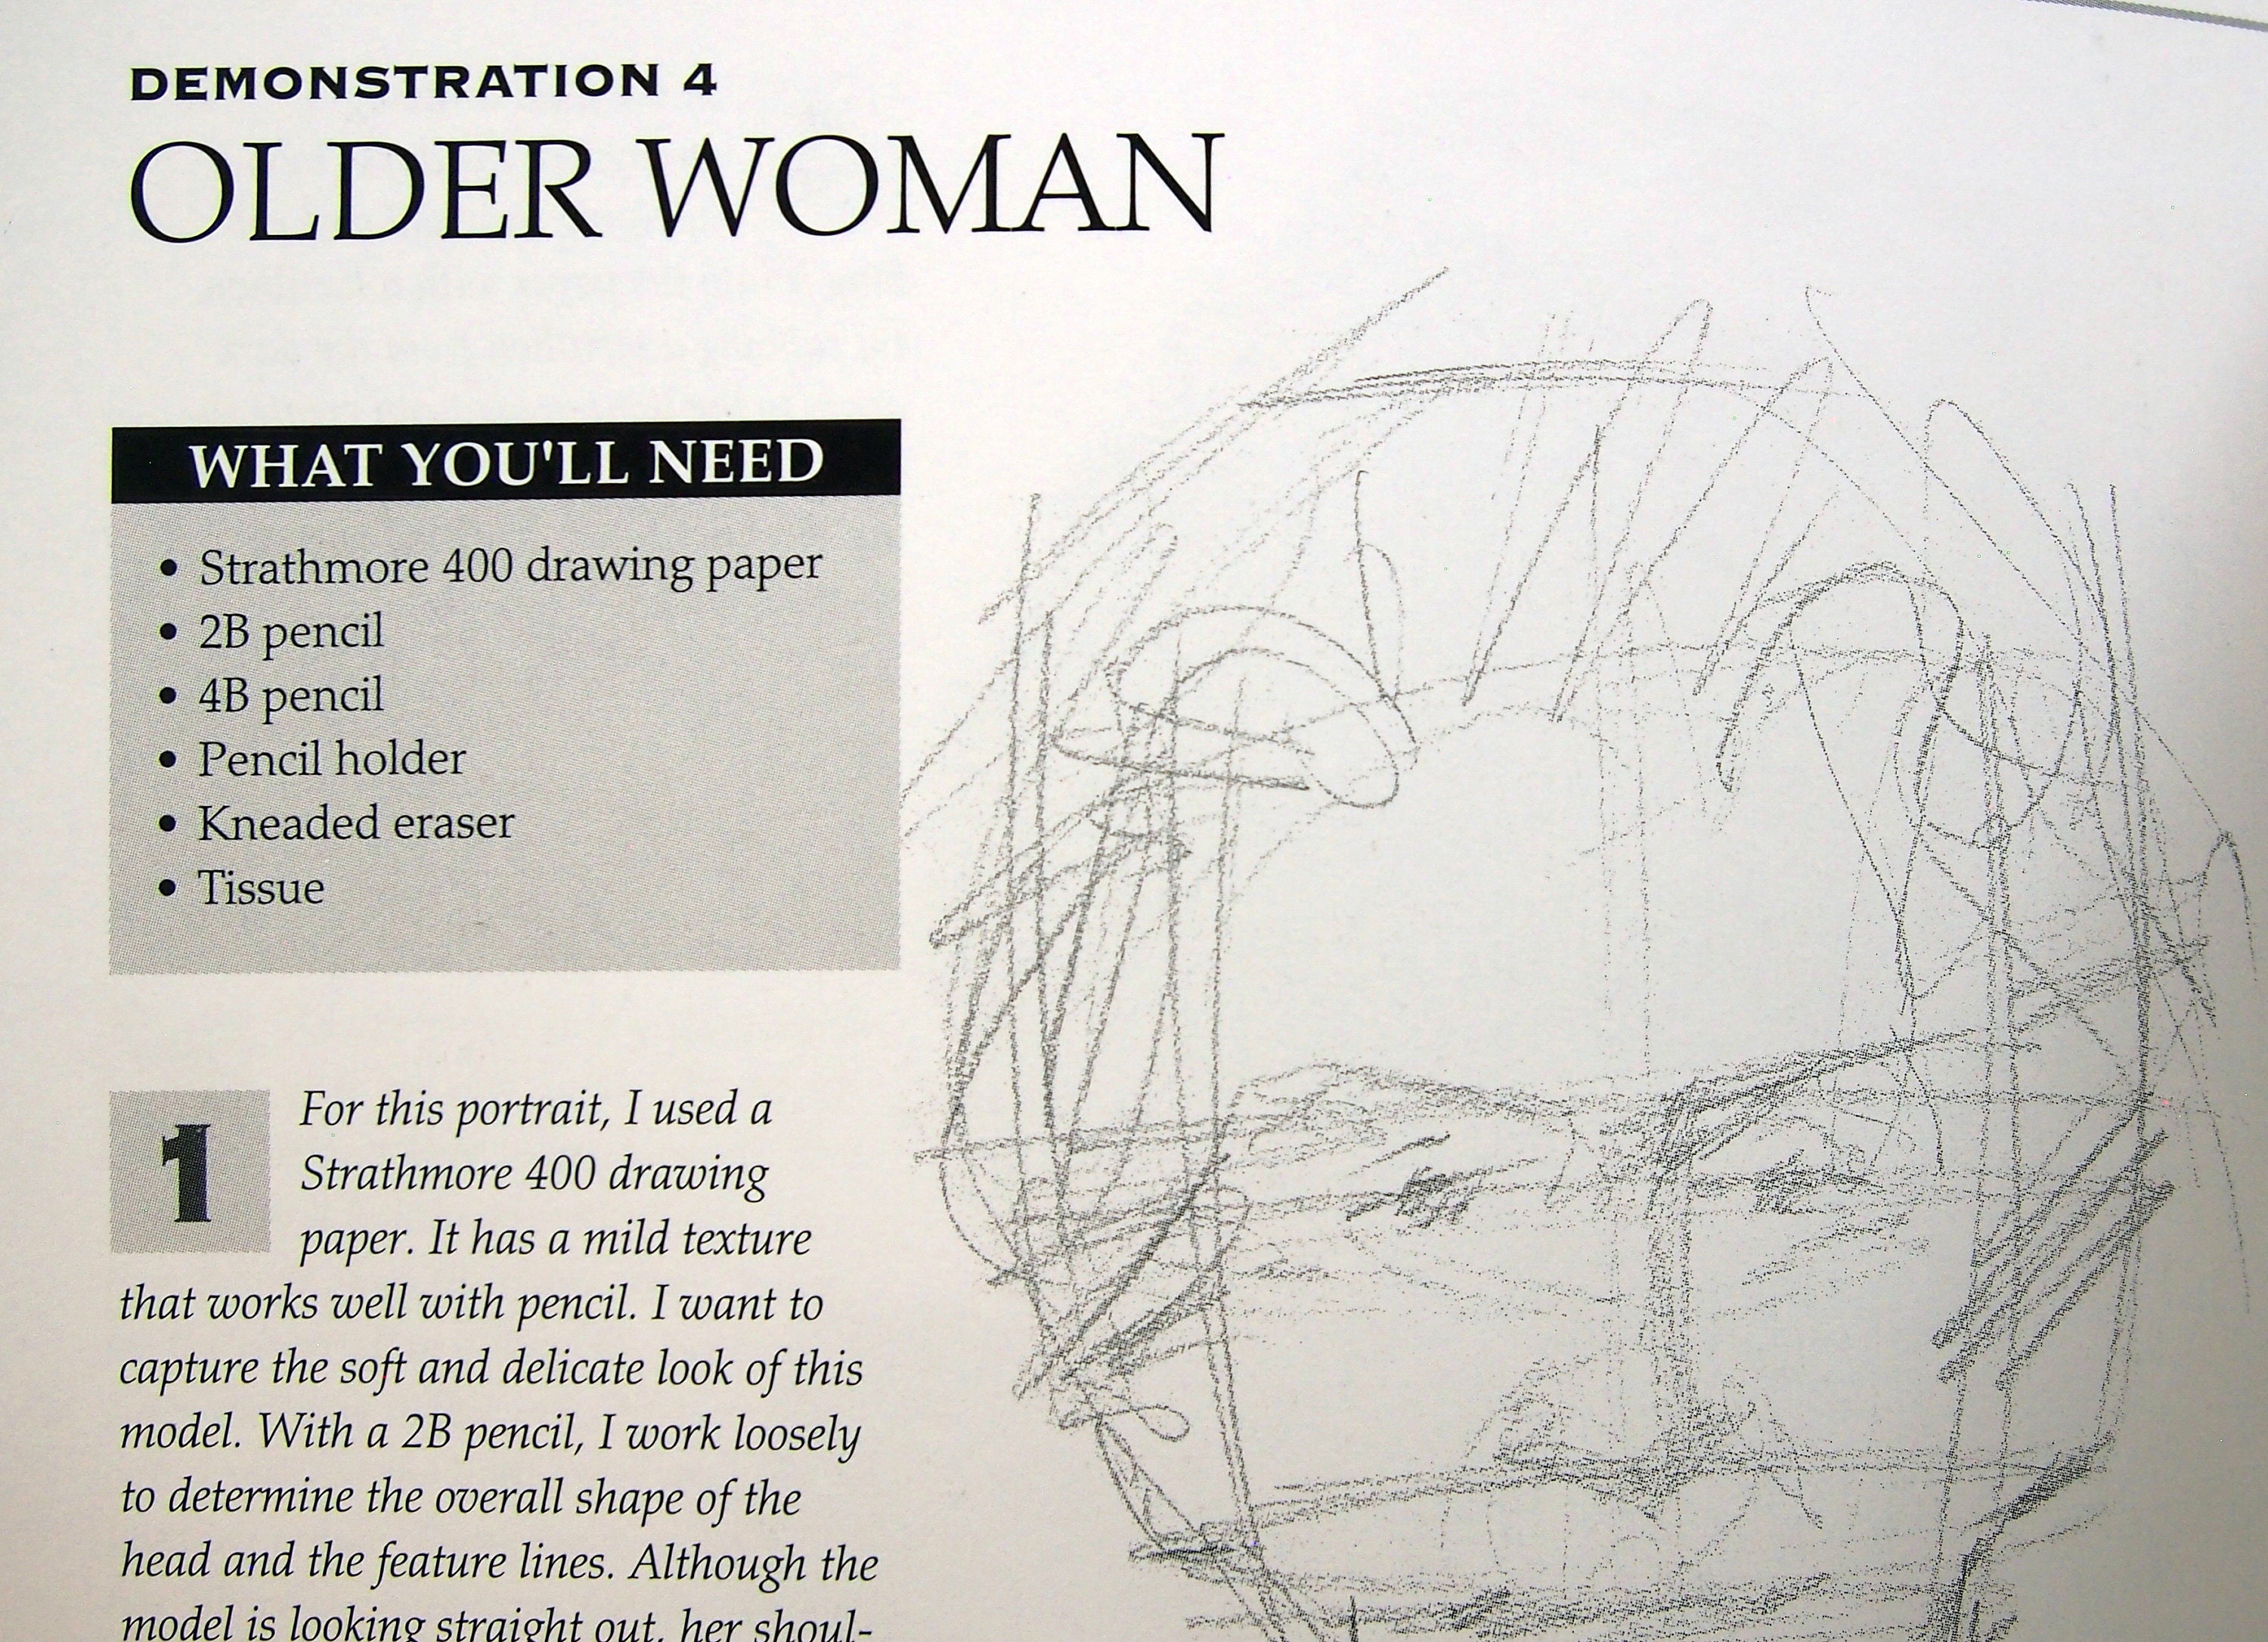 DEMONSTRATION 4
OLDER WOMAN
WHAT YOU'LL NEED
• Strathmore 400 drawing paper
• 2B pencil
• 4B pencil
• Pencil holder
• Kneaded eraser
• Tissue
1
For this portrait, I used a
Strathmore 400 drawing
paper. It has a mild texture
that works well with pencil. I want to
capture the soft and delicate look of this
model. With a 2B pencil, I work loosely
to determine the overall shape of the
head and the feature lines. Although the
model is looking straight out, her shoul-